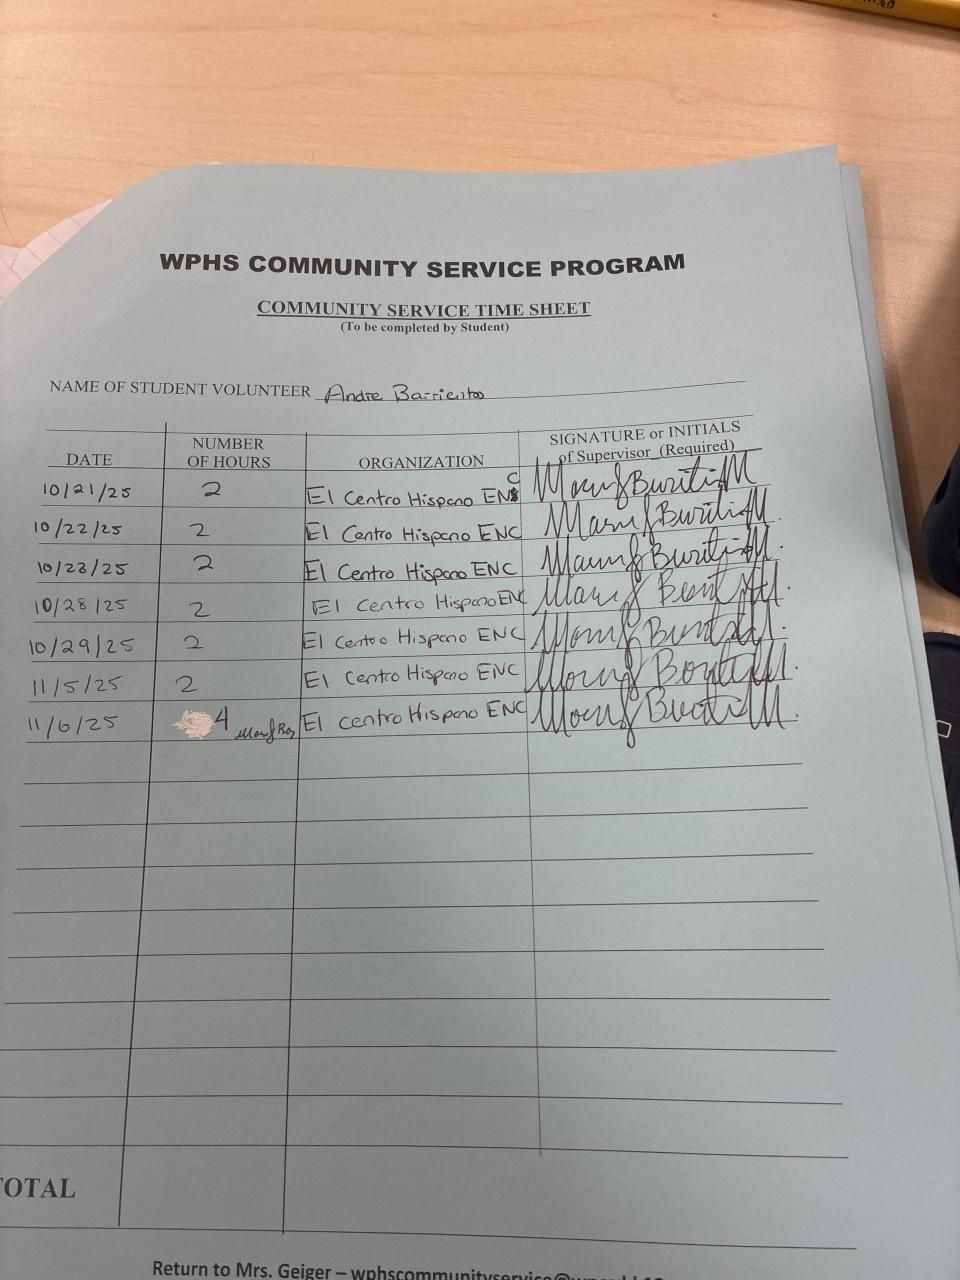 WPHS COMMUNITY SERVICE PROGRAM
COMMUNITY SERVICE TIME SHEET
(To be completed by Student)
NAME OF STUDENT VOLUNTEER Andre Barrientos
DATE NUMBER OF HOURS ORGANIZATION SIGNATURE or INITIALS of Supervisor (Required)
10/21/25 2 El Centro Hispano ENC
10/22/25 2 El Centro Hispano ENC
10/23/25 2 El Centro Hispano ENC
10/28/25 2 El Centro Hispano ENC
10/29/25 2 El Centro Hispano ENC
11/5/25 2 El Centro Hispano ENC
11/6/25 4 El Centro Hispano ENC
TOTAL
Return to Mrs. Geiger –